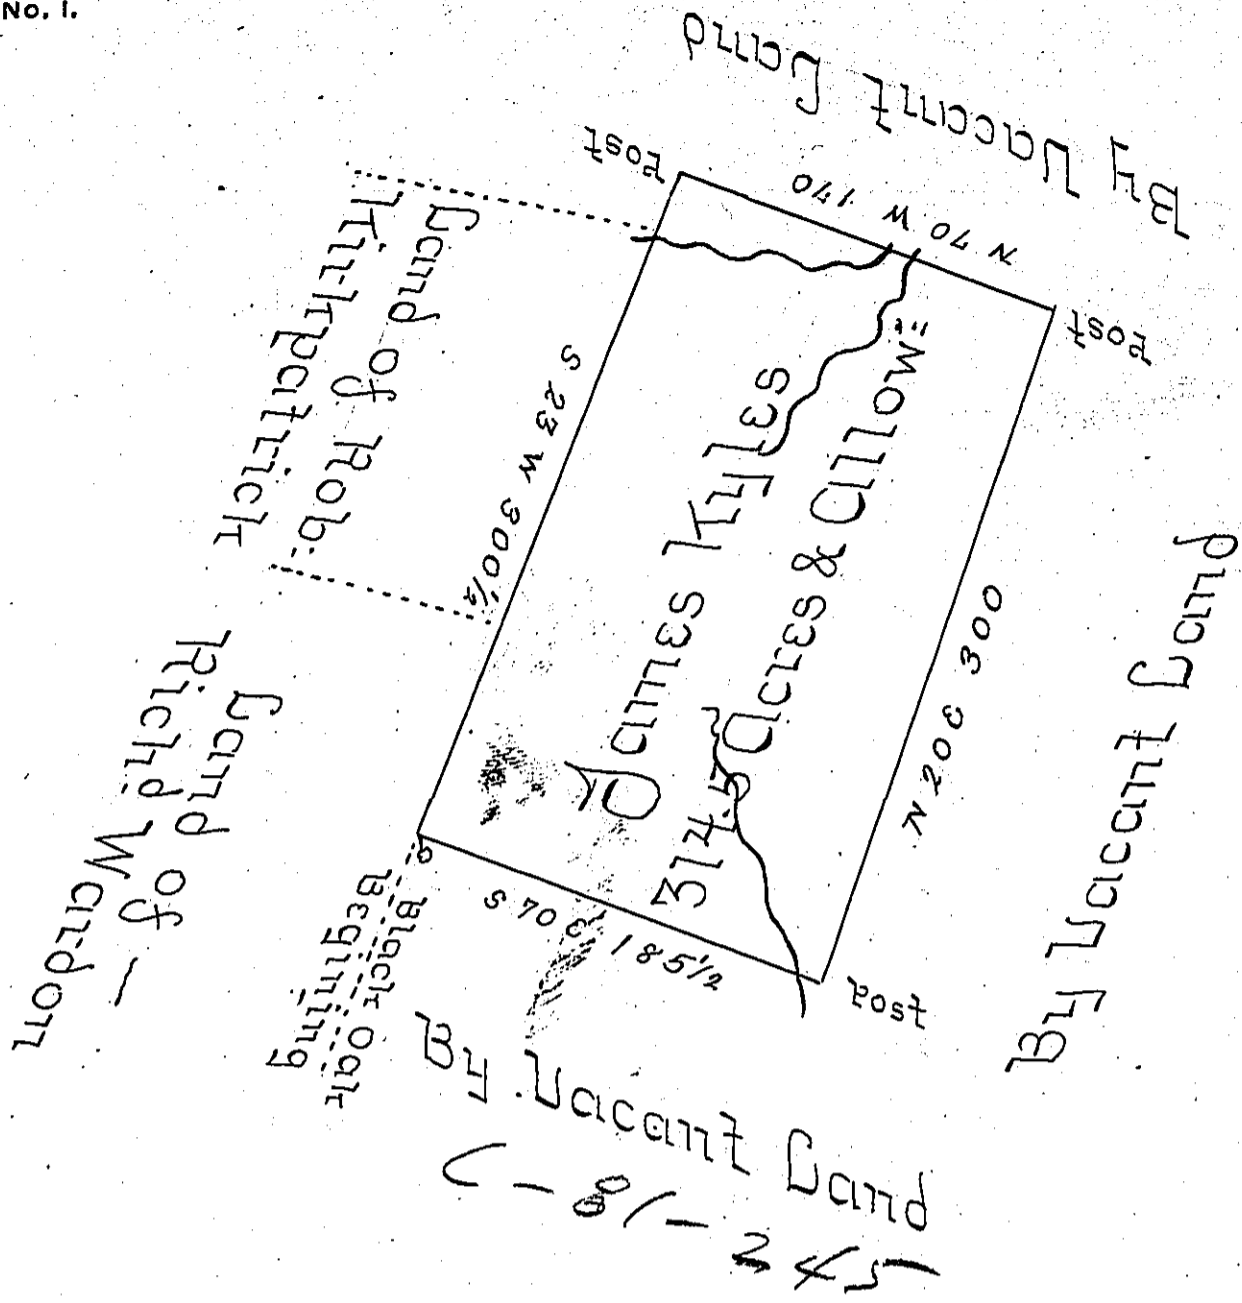 No. 1.
By Vacant Land
Post
N 70 W 170
Post
Land of Rob:
Kirkpatrick
S 23 W 300½
James Kyles
314.5 Acres & Allow.ce
N 20 E 300
By Vacant Land
Land of
Rich.d Wardon
Black Oak
Begining
S 70 E 185½
Post
By Vacant Land
C-81-245